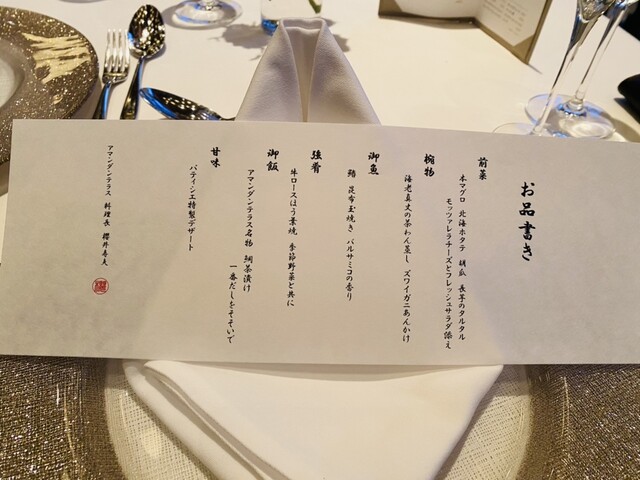 お品書き
前菜
本マグロ 北海ホタテ 胡瓜 長芋のタルタル
モッツァレラチーズとフレッシュサラダ添え
椀物
海老真丈の茶わん蒸し ズワイガニあんかけ
御魚
鰆 昆布玉焼き バルサミコの香り
強肴
牛ロースほう葉焼 季節野菜と共に
御飯
アマンダンテラス名物 鯛茶漬け
一番だしをそそいで
甘味
パティシエ特製デザート
アマンダンテラス 料理長 櫻井寿夫